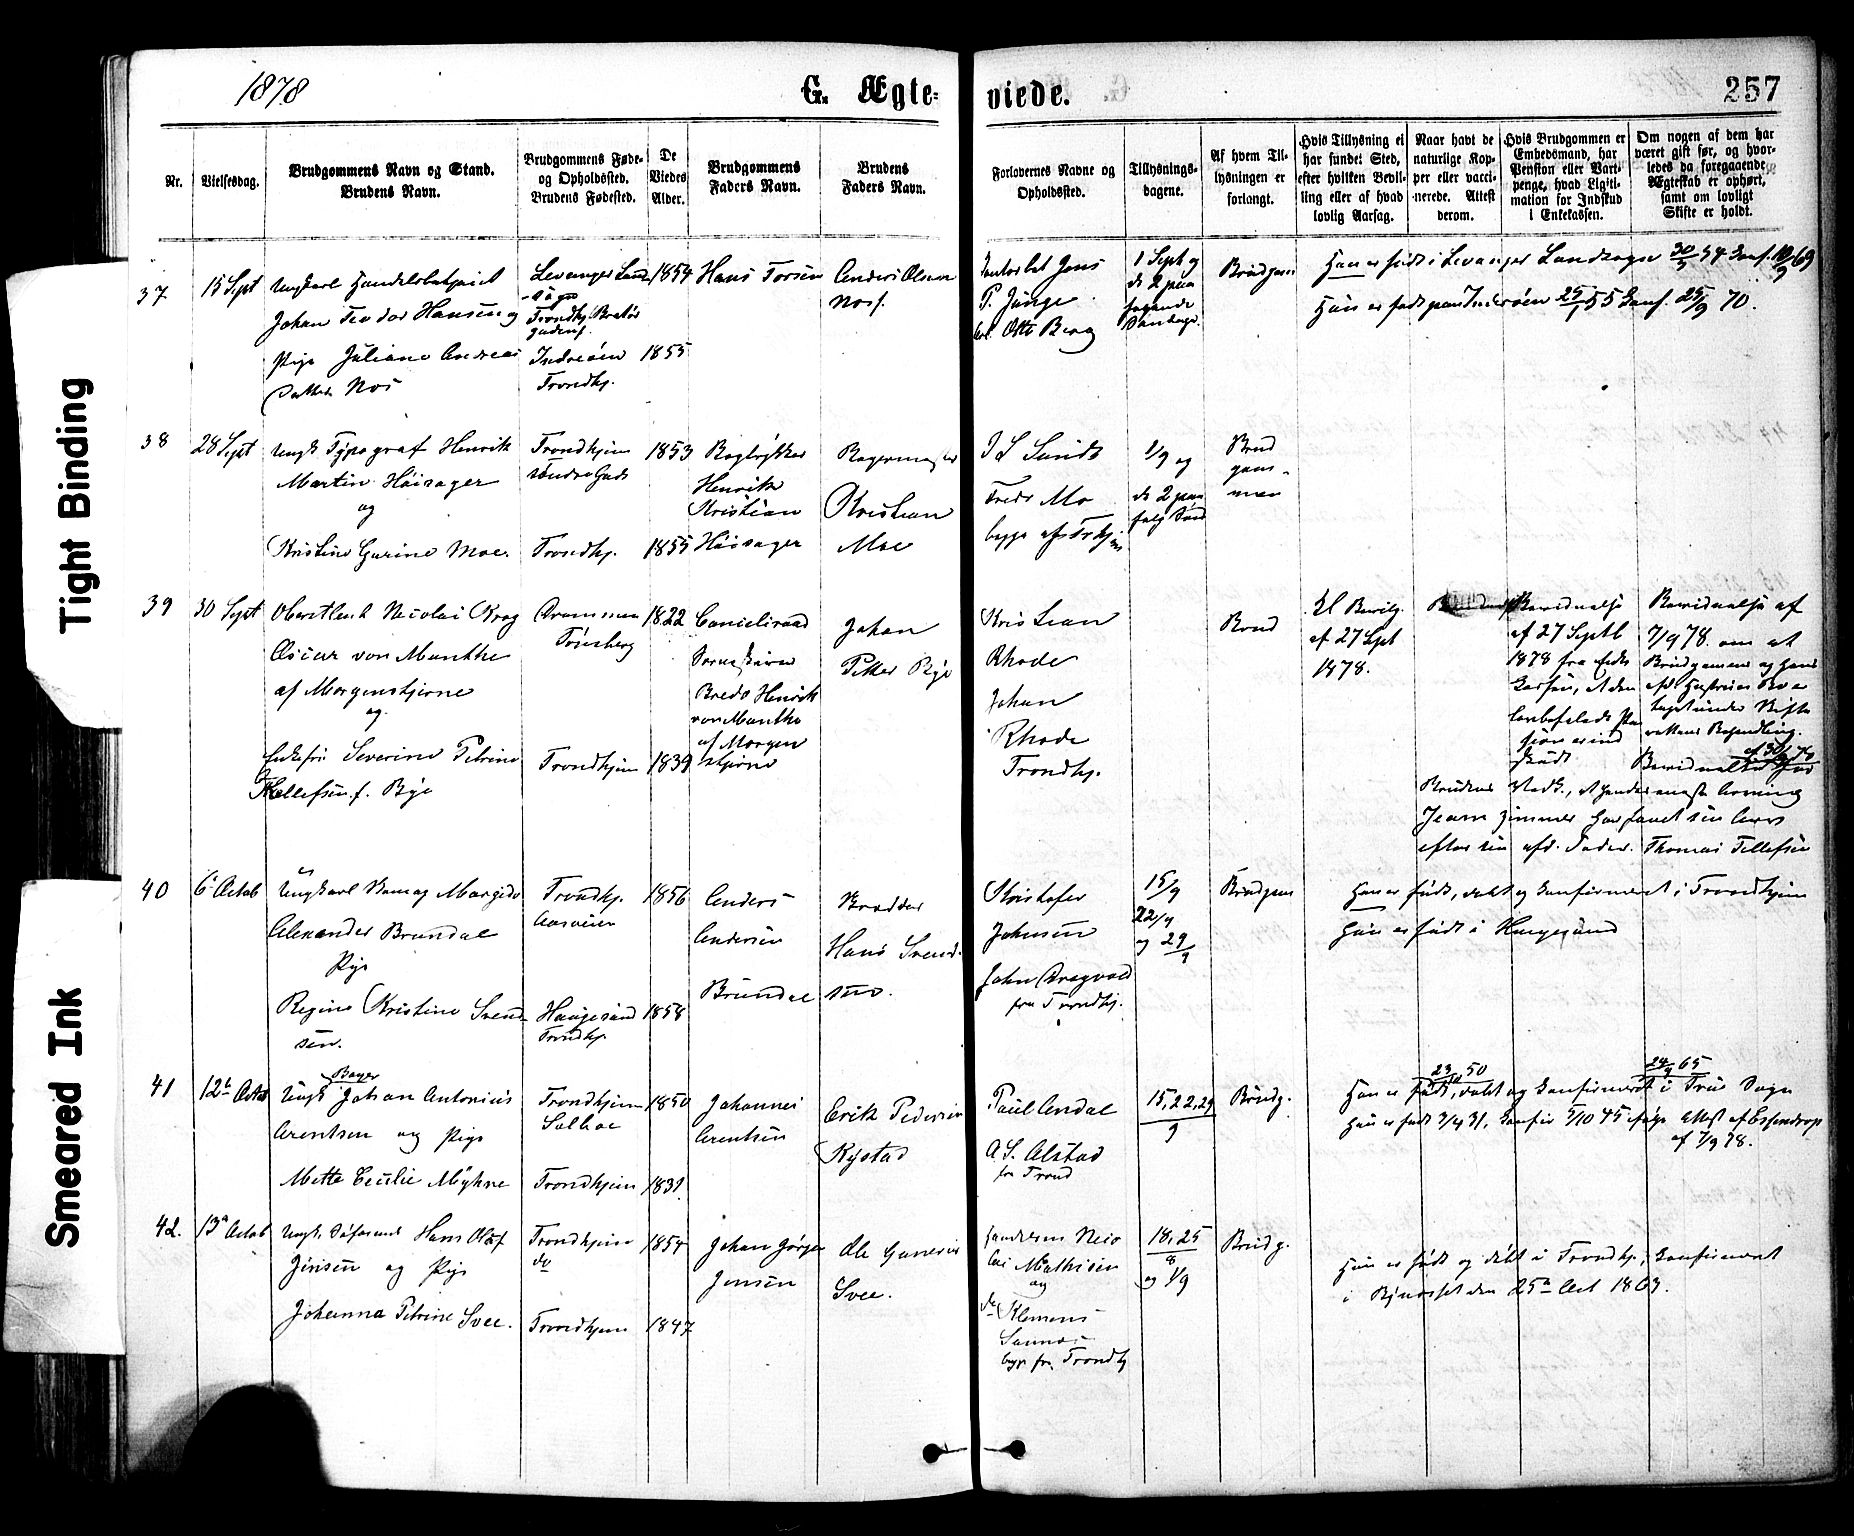 Tight Binding
Smeared Ink
1878
G. Ægte-
viede.
257
Nr.
Vielsesdag.
Brudgommens Navn og Stand.
Brudens Navn.
Brudgommens Føde-
og Opholdssted.
Brudens Fødested.
De
Viedes
Alder.
Brudgommens
Faders Navn.
Brudens
Faders Navn.
Forlovernes Navne og
Opholdssted.
Tillysnings-
dagene.
Af hvem Til-
lysningen er
forlangt.
Hvis Tillysning ei
har fundet Sted,
efter hvilken Bevil-
ling eller af hvad
lovlig Aarsag.
Naar havt de
naturlige Kop-
per eller vacci-
nerede. Attest
derom.
Hvis Brudgommen er
Embedsmand, har
Pension eller Vart-
penge, hvad Ligiti-
mation for Indskud
i Enkekassen.
Om nogen af dem har
været gift før, og hvor-
ledes da foregaaende
Ægteskab er ophørt,
samt om lovligt
Skifte er holdt.
37
15 Sept
Ungkarl Handelsbetjent
Johan Teodor Hansen og
Pige Juliane Andrea
Nos
Levanger Land-
sogn
Trondhj.
Inderøen
Trondhj.
1854
1855
Hans Torsen
Anders Olsen
Nos
Jens
P. Junge
Otte Berg
1 Sept og
de 2 paa
følgende
Søndage.
Brudgom
Han er født i Levanger Landsogn 30/3 54 Konf. 10/9 69
Hun er født paa Inderøen 25/1 55 Konf. 25/9 70.
38
28 Sept
Ungk Typograf Henrik
Martin Høisager
og
Kristine Gurine Moe.
Trondhjem
Søndre Gade
Trondhj.
1853
1855
Bogtrykker
Henrik
Kristian
Høisager
Kristian
Moe
Fredr Mo
begge af Trhjem
1/9 og
de 2 paa
følg Sønd
Brud
gom-
men
39
30 Sept
Oberstleut Nicolai Krog
Oscar von Munthe
af Morgenstjerne
og
Enkefru Severine Petrine
Tellefsen f. Bye
Drammen
Tønsberg
Trondhjem
1822
1839
Cancelliraad
Bredo Henrik
von Munthe
af Morgen
stjerne
Johan
Petter Bye
Kristian
Rhode
Johan
Rhode
Trondhj.
Brud
Kl Bevilg.
af 27 Sept
1878.
Bevidnelse
af 27 Septb
1878 fra Enke
kassen, at den
lovbefalede Pen
sion er ind
skudt
Bevidnelse af
7/9 78 om at
Brudgommen og hans
afd Hustrues Bo er
taget under Skifte
rettens Behandling.
Bevidnelse fra
Brudens Vedk., at hendes eneste Arving
Jean Zimmer har faaet sin Arv
efter sin afd. Fader. Thomas Tellefsen
40
6 Octob
Ungkarl Margido
Alexander Brundal
Pige
Regine Kristine Svend-
sen.
Trondhj.
Aasveien
Haugesund
Trondhj.
1856
1858
Anders
Andersen
Brundal
Hans Svend-
sen.
Kristofer
Johnsen
John Dragvold
fra Trondhj.
15/9
22/9
og 29/9
Brudgom
Han er født, døbt og konfirmeret i Trondhjem
Hun er født i Haugesund
41
12te Octob
Ungk Johan Antonius
Arentsen og Pige
Mette Cecilie Myhre
Trondhjem
Trondhjem
1850
1831
Johannes
Arentsen
Erik Pedersen
Rystad
Paul Andal
A. S. Alstad
fra Trond
15, 22, 29
9
Brudg.
23 50
24/9 65
Han er født, døbt og konfirmeret i Frue Sogn
Hun er født 3/4 31, Konfir 5/10 45 ifølge Attest af Essendrop
af 7/9 78.
42.
13de Octob
Ungk. Søfarend Hans Olaf
Jensen og Pige
Johanna Petrine Svee.
Trondhjem
do
Trondhjem
1854
1847
Johan Jørgen
Jensen
Ole Gunerius
Svee.
Mathisen
og
Klemens
begge fra Trondhj
18, 25
8
og 1/9
Brudg.
Hun er født og døbt i Trondhj, konfirmeret
i Bynæsset den 25de Oct 1863.